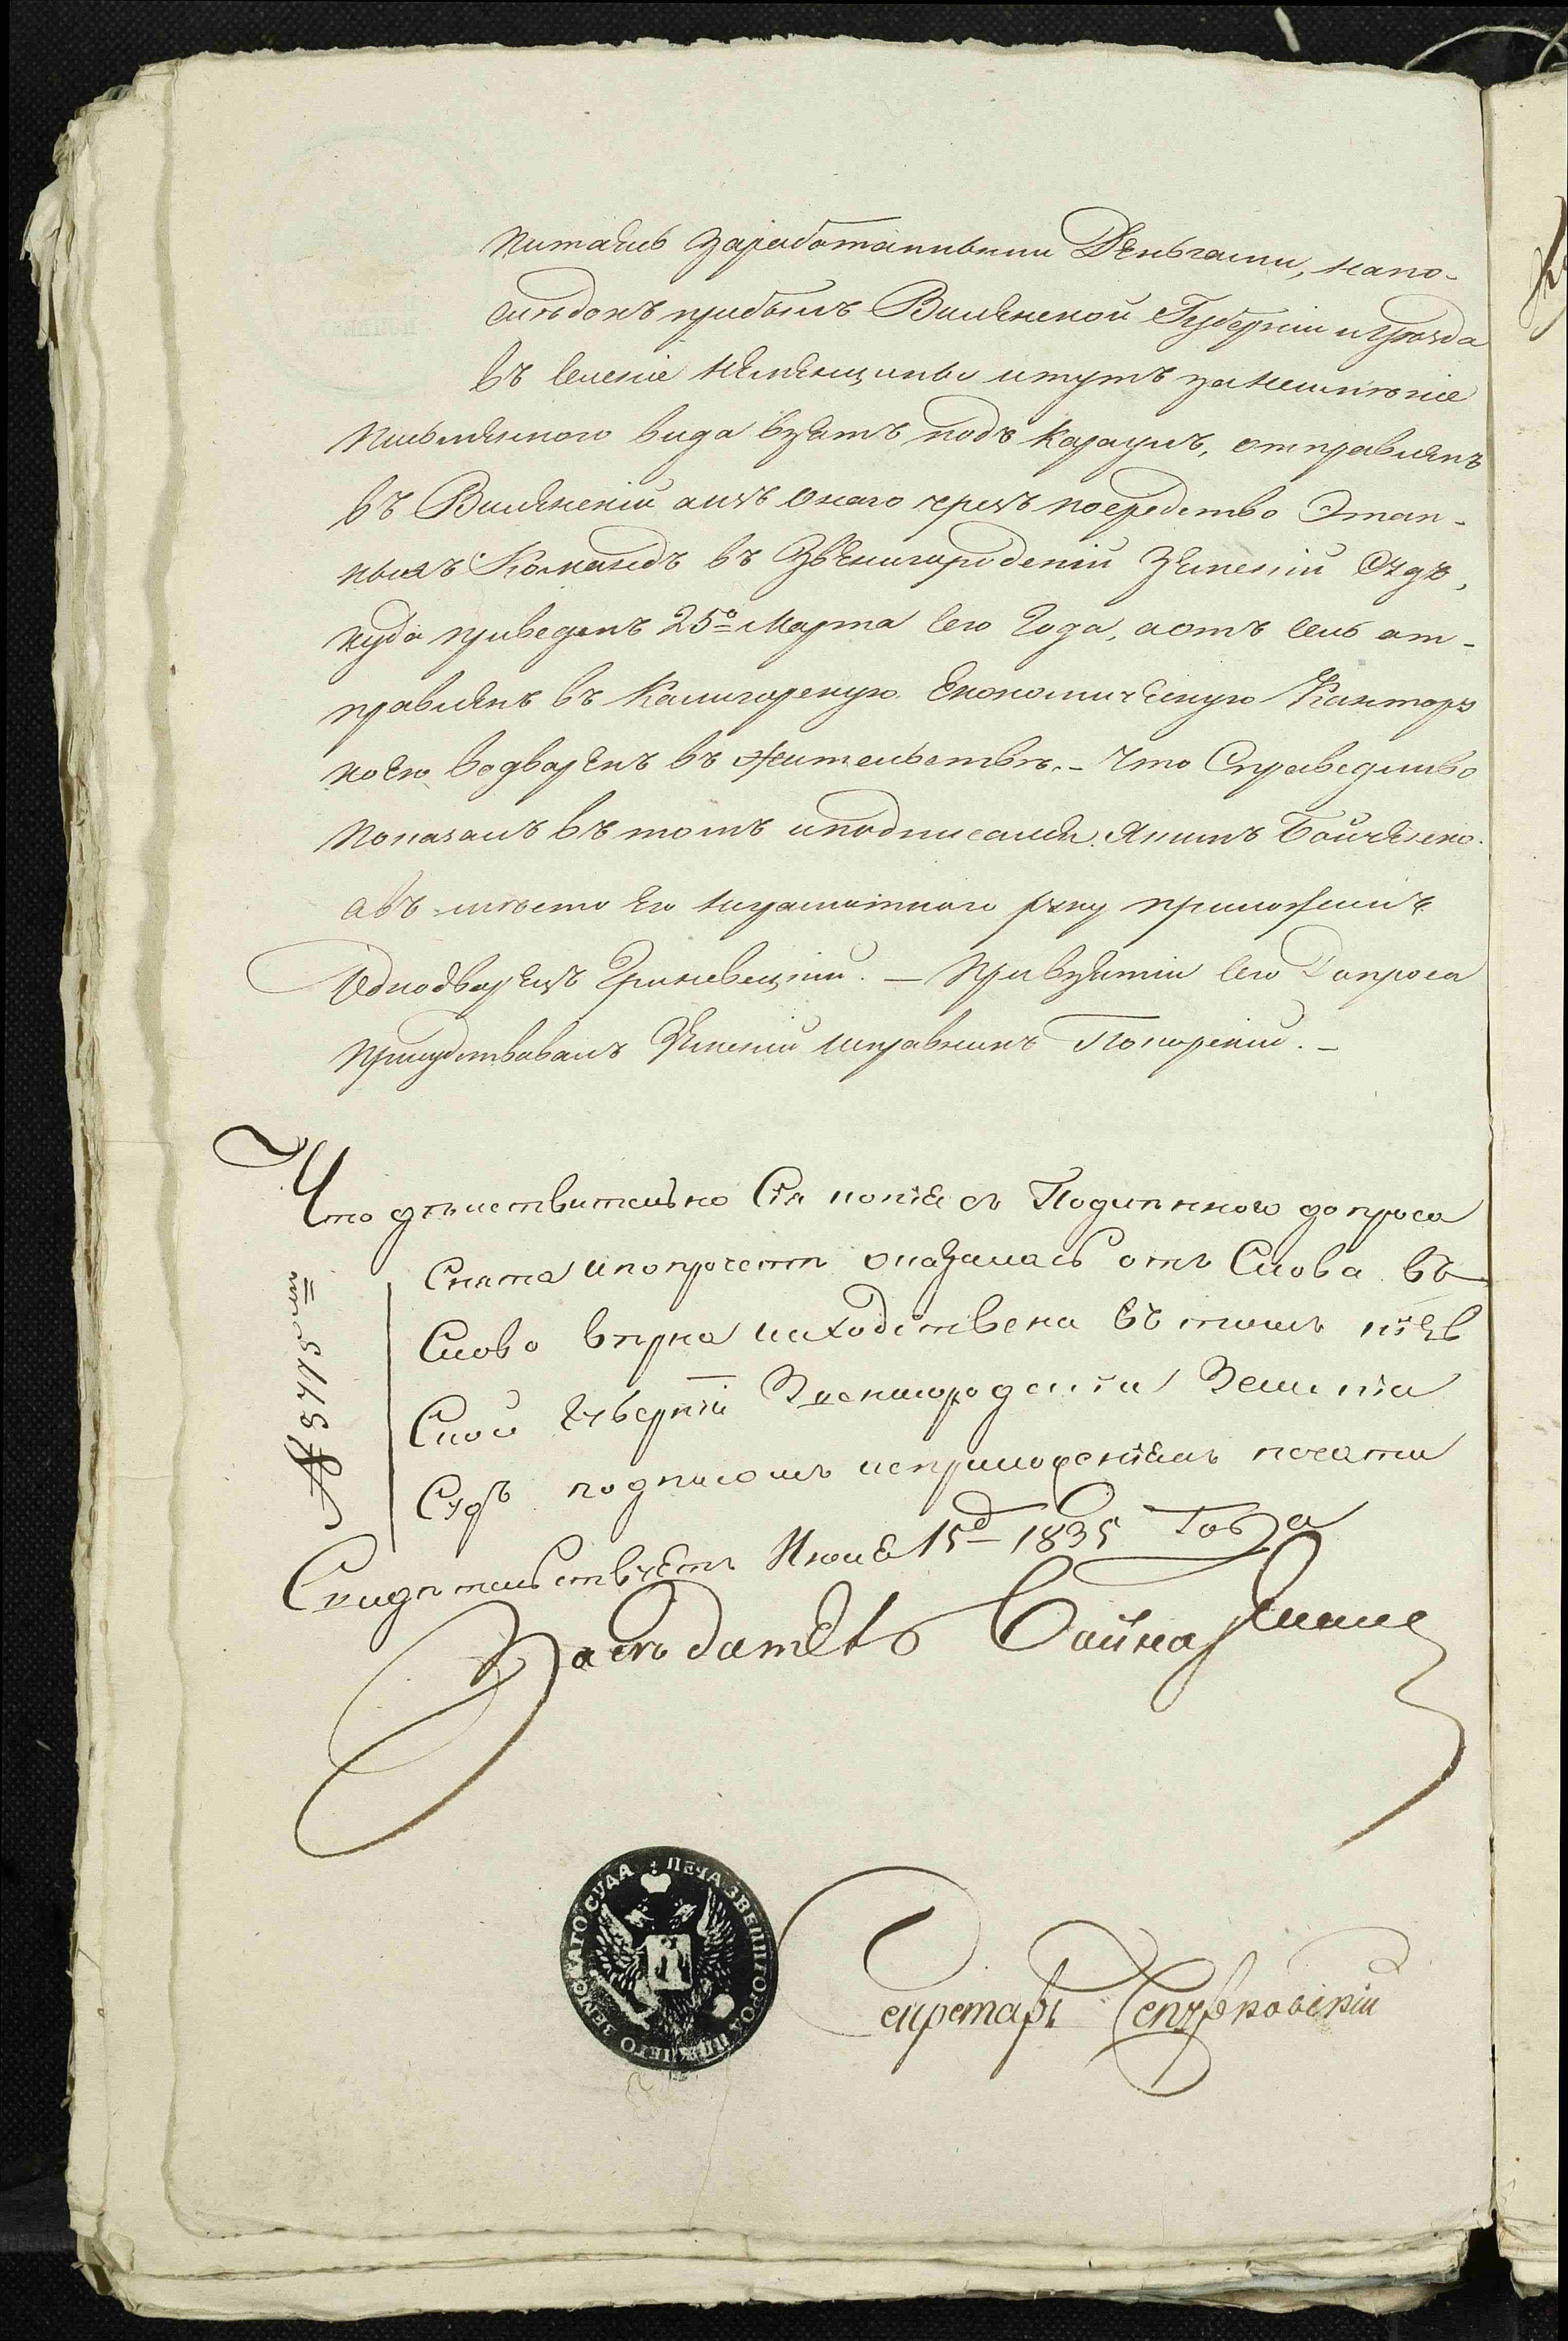 питаясь заработанными Деньгами, напо-
слѣдокъ прибылъ Виленской Губерніи и уѣзда
въ селеніе Неменщины и тутъ за неимѣніе
письменного вида взятъ подъ караулъ, отправленъ
въ Виленскій а изъ Онаго чрезъ посредство Этап-
ныхъ Командъ въ Звенигородскій Земскій Судъ,
куда приведенъ 25го Марта сего Года, а отъ сель от-
правленъ въ Калигорскую Економическую Кантору
коею водворенъ въ жительствѣ. – Что Справедливо
показалъ въ томъ и подписался. Якимъ Бойченко.
а въ мѣсто Его неграмотного руку приложилъ
Однодворецъ Гриневецкій. — При взятіи сего Допроса
присудствовалъ Земскій исправникъ Погорскій. –
Что дѣйствительно Сія копія съ Подлинного допроса
Снята и по прочетѣ оказалась отъ Слова въ
Слово вѣрна и сходственна въ томъ кіев
Ской Губерніи Звенигородскій Земскій
Судъ подписомъ и съ приложеніемъ печати
Свидѣтельствуетъ Июня 15д 1835 Года
№ 5715
Засѣдатель
Секретарь
ПЕЧА ЗВЕНИГОРОД НИЖНЕГО ЗЕМСКАГО СУДА